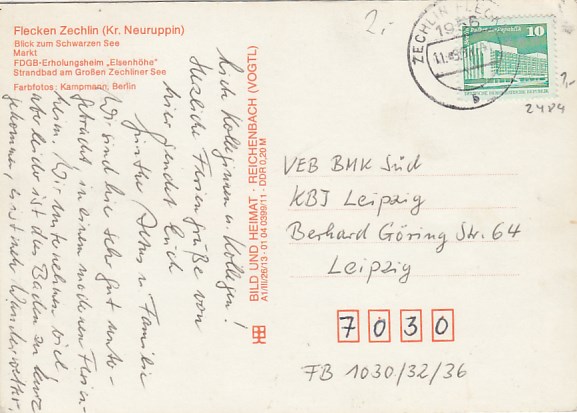 Flecken Zechlin (Kr. Neuruppin)
Blick zum Schwarzen See
Markt
FDGB-Erholungsheim „Elsenhöhe"
Strandbad am Großen Zechliner See
Farbfotos: Kampmann, Berlin
2,-
ZECHLIN FLEC
1956
10
DEUTSCHE DEMOKRATISCHE REPUBLIK
2,-
2484
BILD UND HEIMAT · REICHENBACH (VOGTL)
A1/III/26/13 · 01 04 0399/11 · DDR 0,20 M
Lieb Kolleginnen u. Kollegen!
Herzliche Feriengrüße von
hier sendet Euch
u. Familie
Wir sind hier sehr gut unter-
gebracht, in einem modernen Ferien-
heim. Wir unternehmen viel,
aber leider ist das Baden zu kurz
gekommen, es ist mehr Wanderwetter
VEB BMK Süd
KBI Leipzig
Berhard Göring Str. 64
Leipzig
7030
FB 1030/32/36